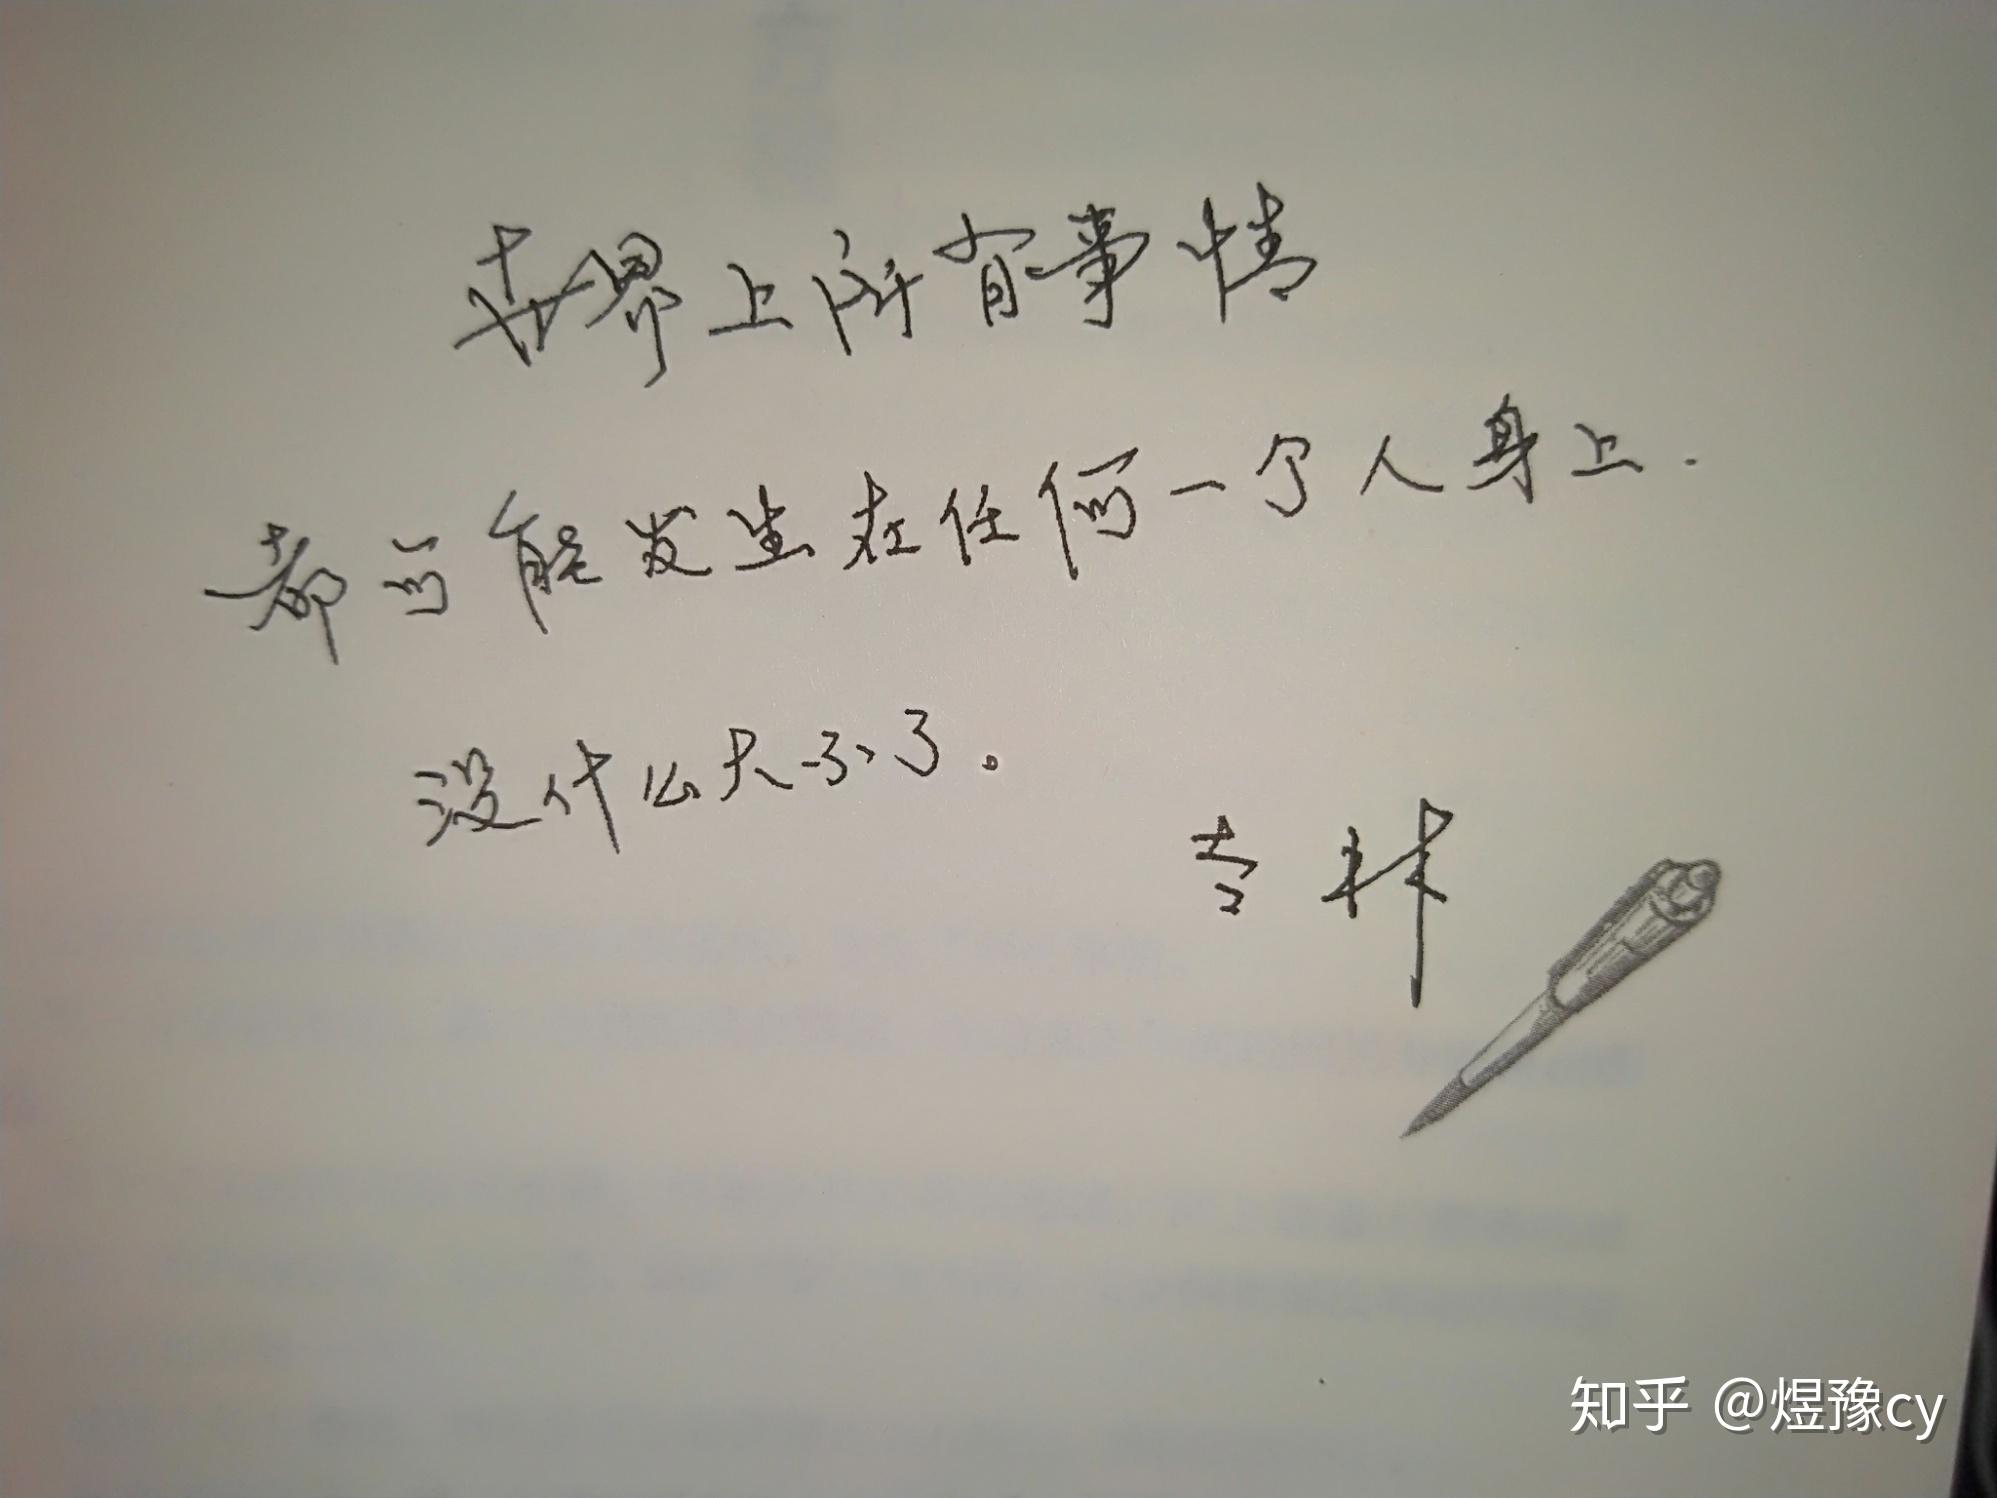 世界上所有事情
都可能发生在任何一个人身上.
没什么大不了。
知乎 @煜豫cy